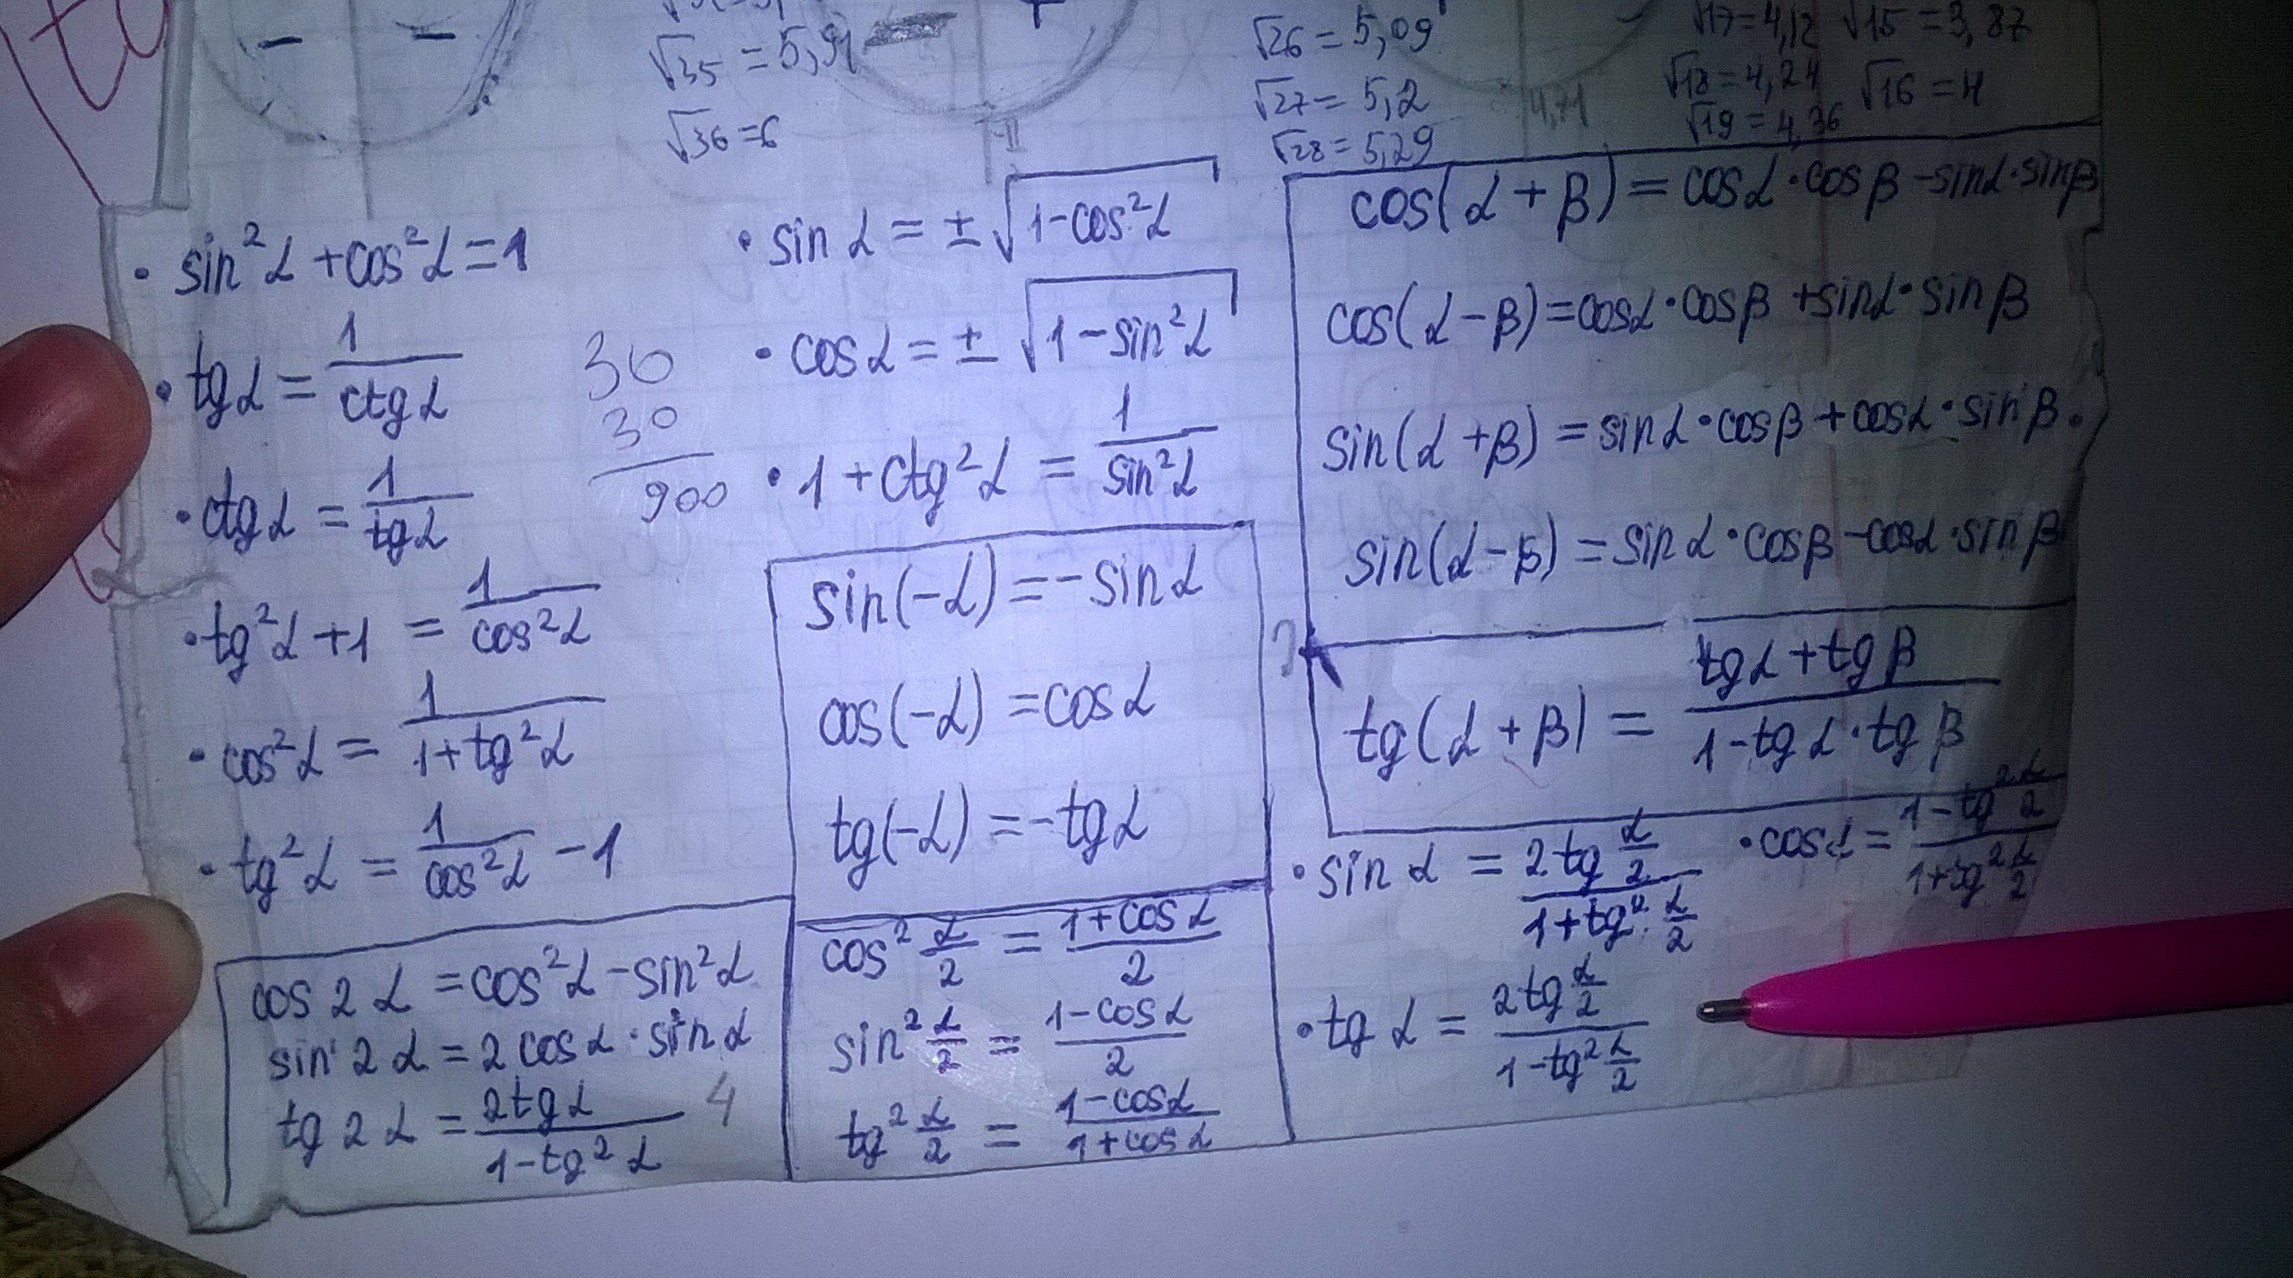 √35 = 5,91
√36 = 6
√26 = 5,09
√27 = 5,2
√28 = 5,29
√17 = 4,12 √15 = 3,87
√18 = 4,24 √16 = 4
√19 = 4,36
4,71
• sin²α + cos²α = 1
• tgα = 1/ctgα
• ctgα = 1/tgα
• tg²α + 1 = 1/cos²α
• cos²α = 1/(1+tg²α)
• tg²α = 1/cos²α - 1
30
30
900
• sin α = ± √(1-cos²α)
• cos α = ± √(1-sin²α)
• 1 + ctg²α = 1/sin²α
sin(-α) = -sinα
cos(-α) = cosα
tg(-α) = -tgα
cos(α+β) = cosα·cosβ - sinα·sinβ
cos(α-β) = cosα·cosβ + sinα·sinβ
sin(α+β) = sinα·cosβ + cosα·sinβ.
sin(α-β) = sinα·cosβ - cosα·sinβ
tg(α+β) = (tgα+tgβ)/(1-tgα·tgβ)
cos2α = cos²α - sin²α
sin2α = 2cosα·sinα
tg2α = 2tgα/(1-tg²α) 4
cos² α/2 = (1+cosα)/2
sin² α/2 = (1-cosα)/2
tg² α/2 = (1-cosα)/(1+cosα)
• sin α = (2tg α/2)/(1+tg² α/2) • cosα = (1-tg² α/2)/(1+tg² α/2)
• tg α = (2tg α/2)/(1-tg² α/2)